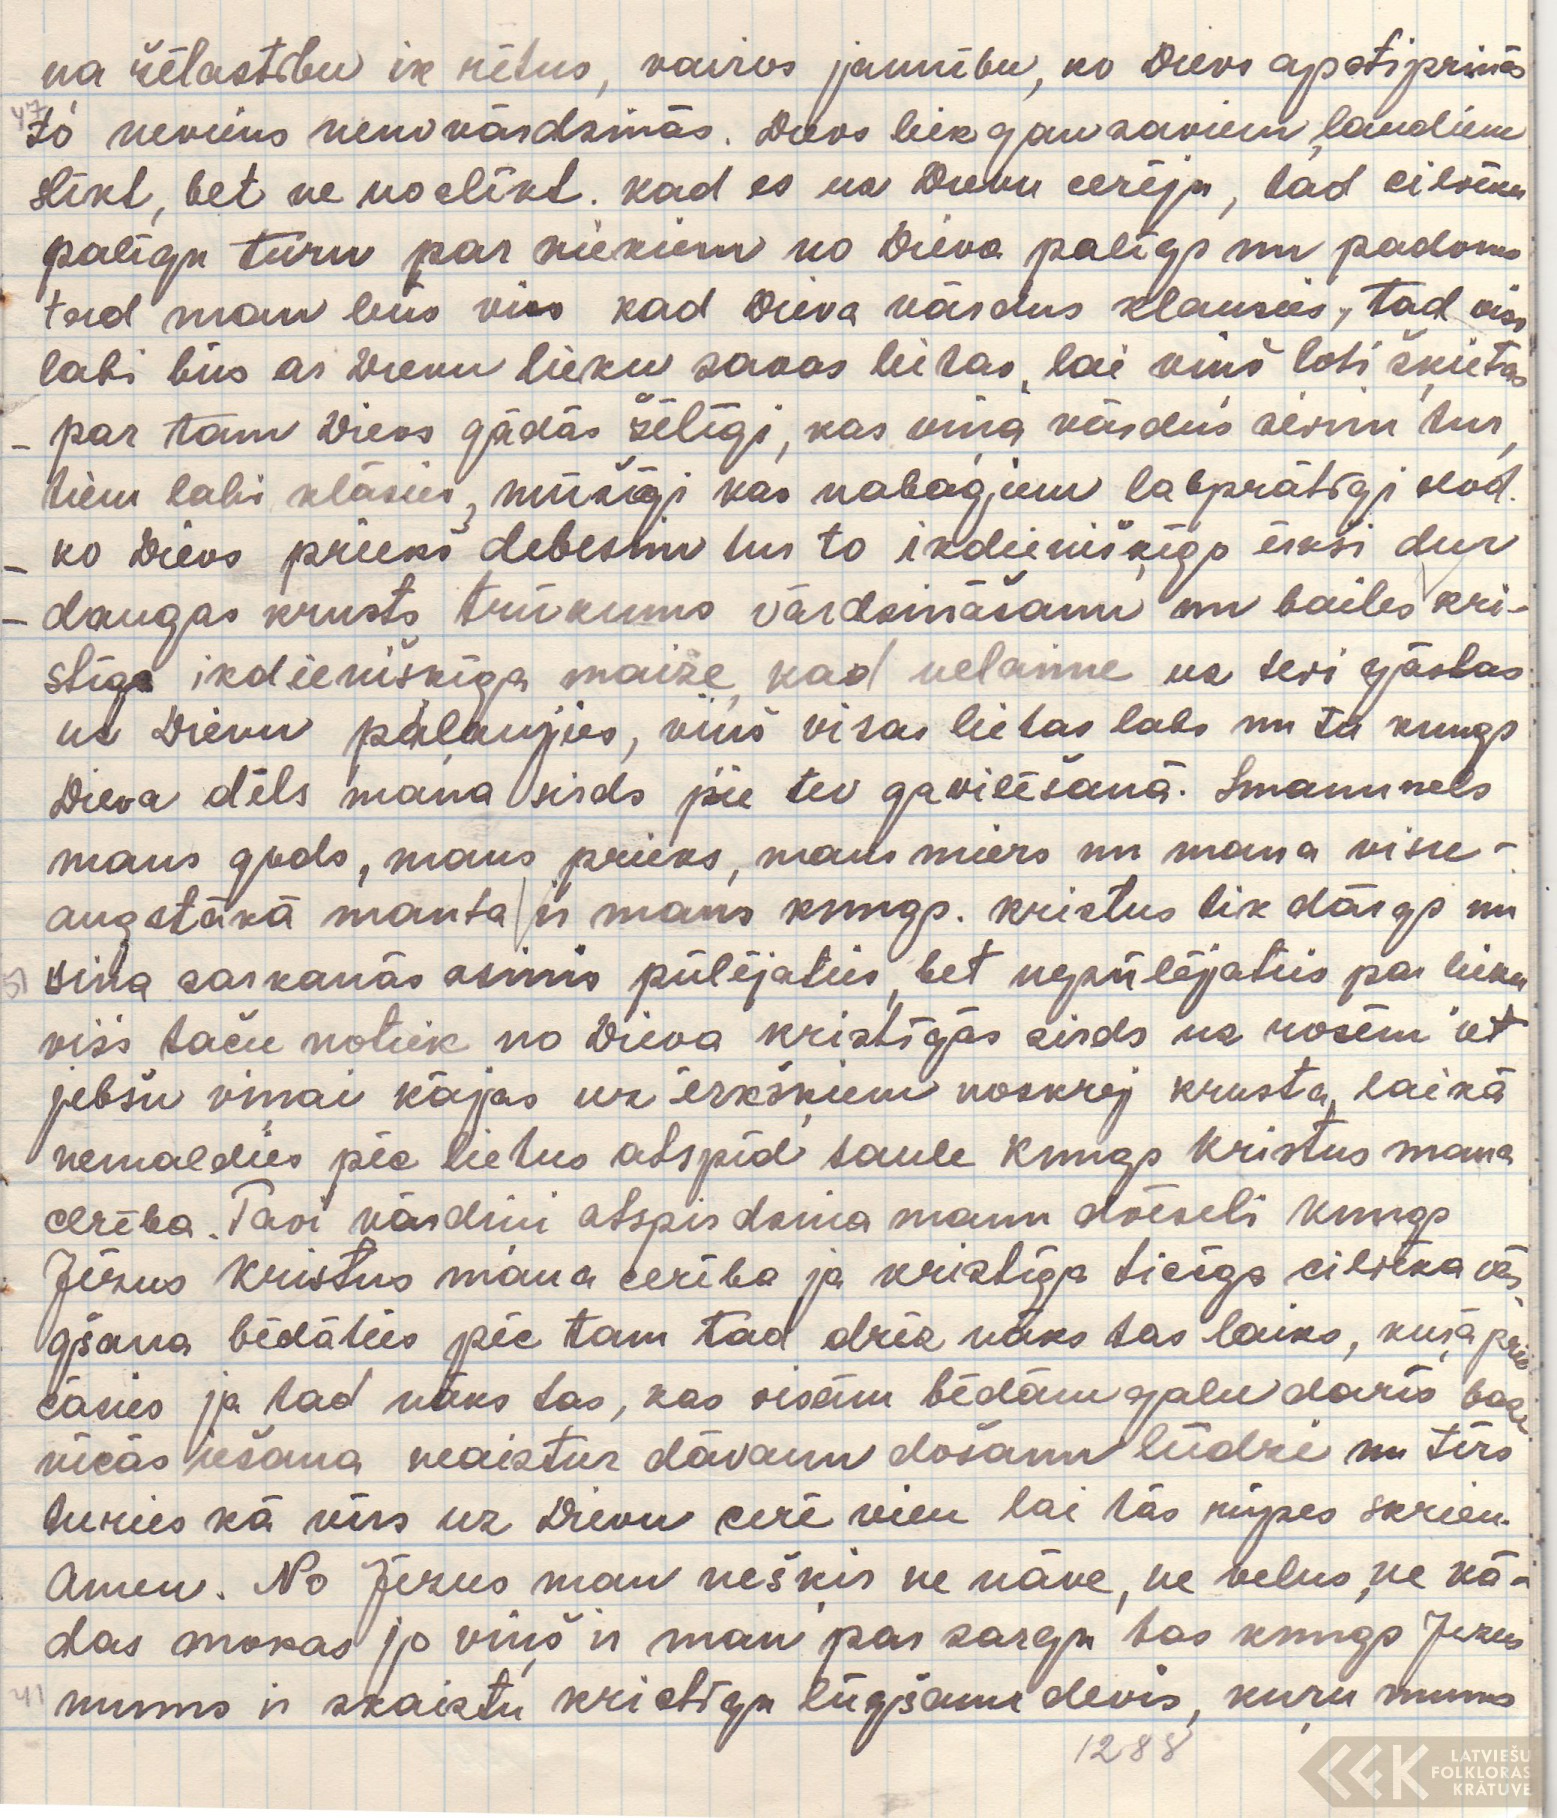 na žēlastību ik rītus, vairos jaunību, ko Dievs apstiprinās
47 to neviens nenovārdzinās. Dievs liek gan saviem ļaudiem
slīkt, bet ne noslīkt. kad es uz Dievu cerēju, tad cilvēku
palīgu turu par niekiem no Dieva palīgs un padoms
tad man būs viss kad Dieva vārdus klausies, tad viss
labi būs ar Dievu lieku savas lietas, lai viņš ļoti šķietas
- par tam Dievs gādās žēlīgi, kas viņa vārdus sirnīn tur,
tiem labi klāsies, mūžīgi kas nabagiem labprātīgi dod.
- ko Dievs priekš debesīm tur to ikdienišķīgo ērkšķi dur
- daugas krusts trūkums vārdzināšanu un bailes kri-
stīga ikdienišķīga maize, kad nelaime uz tevi gāstas
uz Dievu palaujies, viņš visas lietas labs un tu kungs
Dieva dēls mana sirds pie tev gavilēšanā. Imanuuels
mans gods, mans prieks, mans miers un mana visu-
augstākā manta ir mans kungs. kristus tik dārgs un
51 viņa sarkanās asinis pūlējaties, bet nepūlējaties par lieku
viss taču notiek no Dieva kristīgās sirds uz rozēm iet
jebšu viņai kājas uz ērkšķiem noskrej krusta laikā
nemaldies pēc lietus atspīd saule Kungs Kristus mana
cerība. Tavi vārdiņi atspirdzina manu dvēseli kungs
Jēzus Kristus mana cerība ja kristīga ticīga cilvēka vār-
gšana bēdāties pēc tam tad drīz nāks tas laiks, kurā prie
cāsies ja tad nāks tas, kas visām bēdām galu darīs baz
nīcās iešana neaiztur dāvanu došanu lūdzi un tīrs
turies kā vīrs uz Dievu cerē vien lai tās rūpes skrien.
Amen. No Jēzus man nešķir ne nāve, ne velns, ne kā-
das mokas jo viņš ir man par sargu tas kungs Jēzus
41 mums ir skaistu kristīgu lūgšanu devis, kuru mums
1288
LATVIEŠU
FOLKLORAS
KRĀTUVE